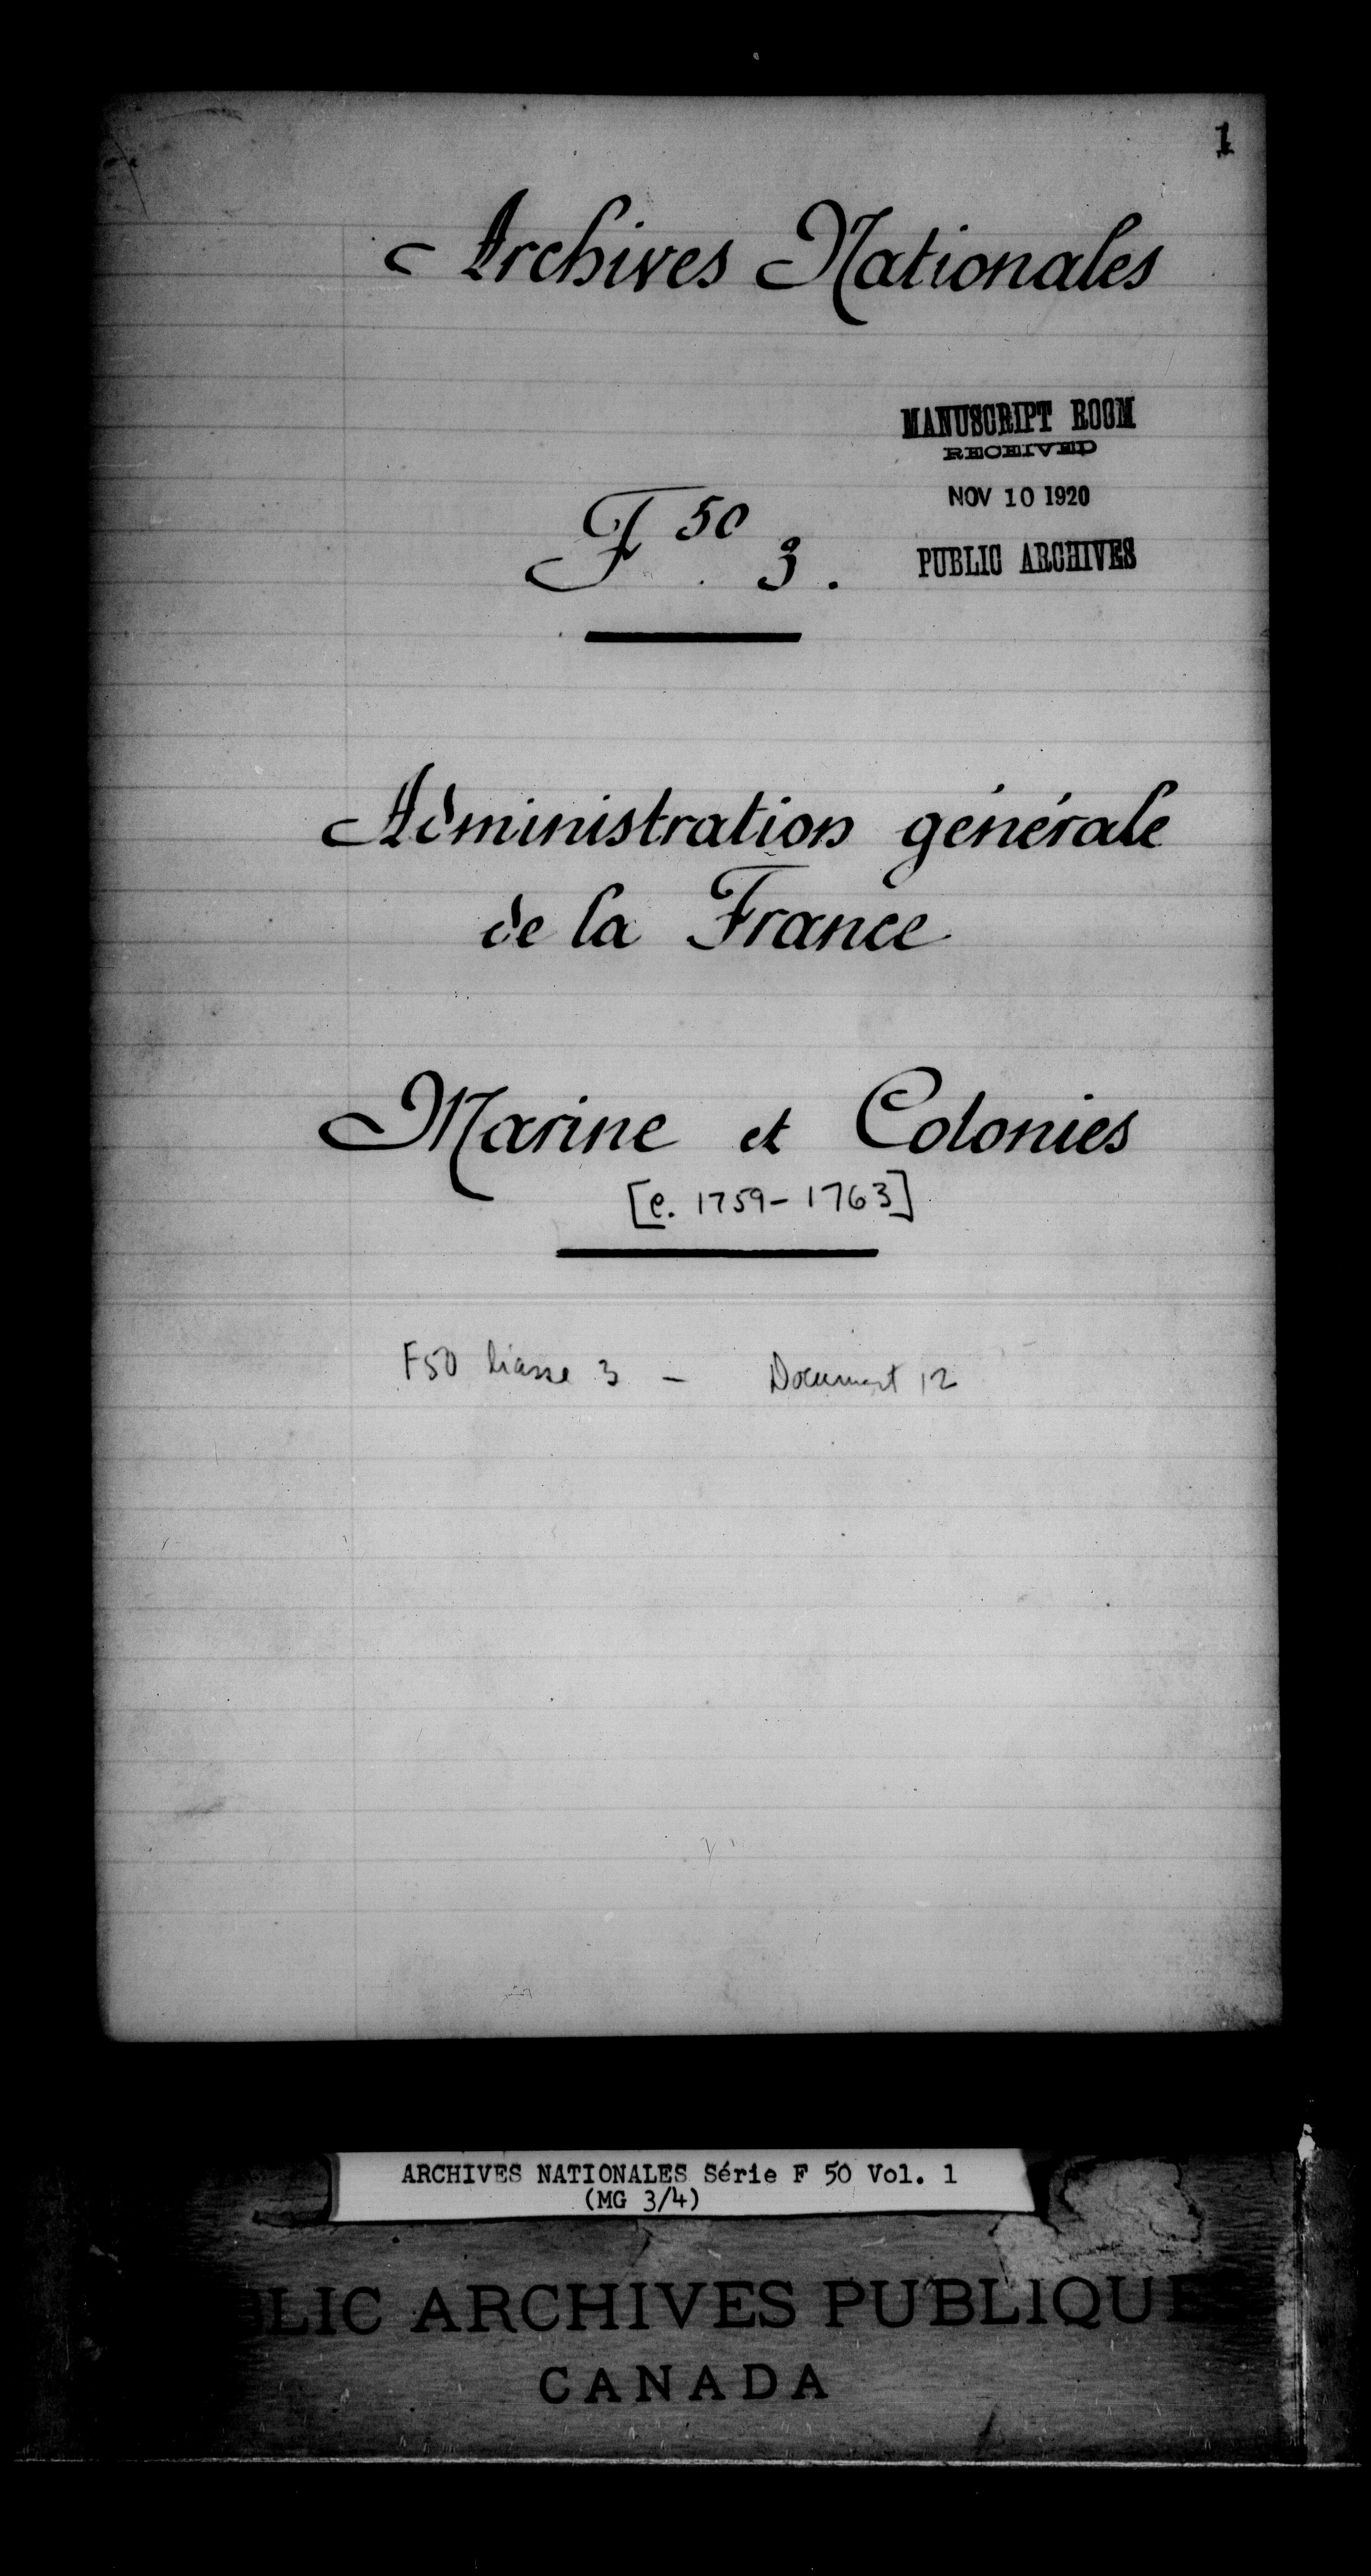 1
Archives Nationales
MANUSCRIPT ROOM
RECEIVED
NOV 10 1920
PUBLIC ARCHIVES
F 50 3.
Administration générale
de la France
Marine et Colonies
[c. 1759-1763]
F50 liasse 3 - Document 12
ARCHIVES NATIONALES Série F 50 Vol. 1
(MG 3/4)
LIC ARCHIVES PUBLIQUE
CANADA